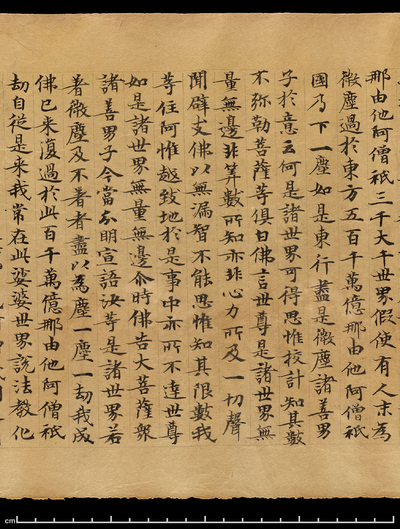 那由他阿僧祇三千大千世界假使有人末為
微塵過於東方五百千萬億那由他阿僧祇
國乃下一塵如是東行盡是微塵諸善男
子於意云何是諸世界可得思惟挍計知其數
不弥勒菩薩等俱白佛言世尊是諸世界無
量無邊非筭數所知亦非心力所及一切聲
聞辟支佛以無漏智不能思惟知其限數我
等住阿惟越致地於是事中亦所不達世尊
如是諸世界無量無邊尒時佛告大菩薩衆
諸善男子今當分明宣語汝等是諸世界若
著微塵及不著者盡以為塵一塵一劫我成
佛已来復過於此百千萬億那由他阿僧祇
劫自從是来我常在此娑婆世界說法教化
cm